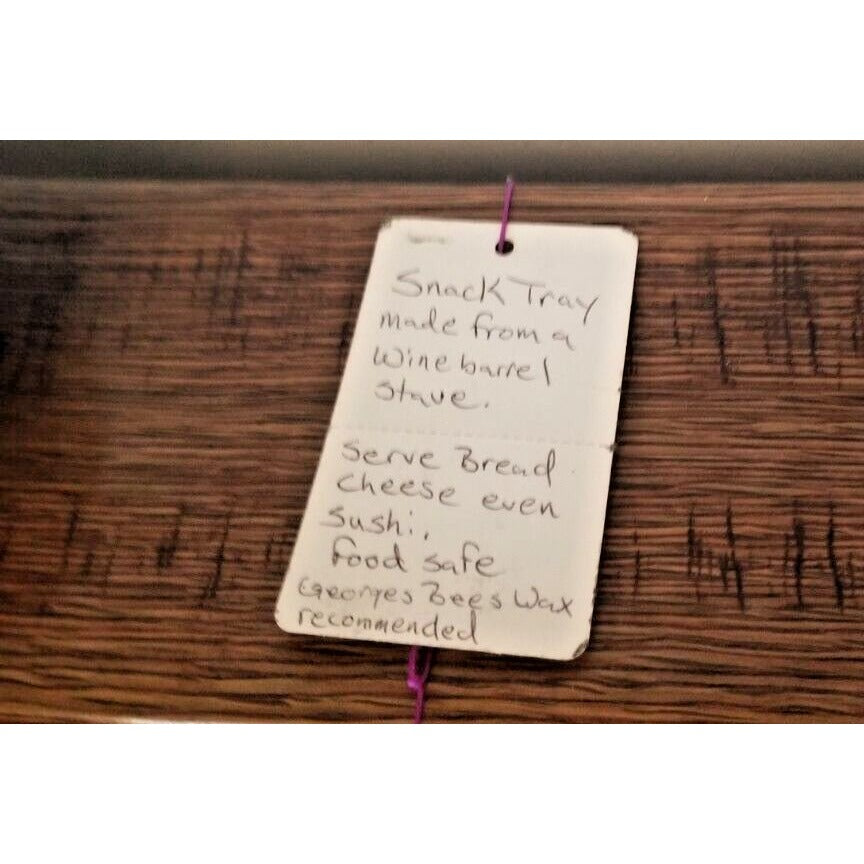 Snack Tray
made from a
Wine barrel
Stave.
Serve Bread
cheese even
Sushi,
food safe
Georges Bees Wax
recommended